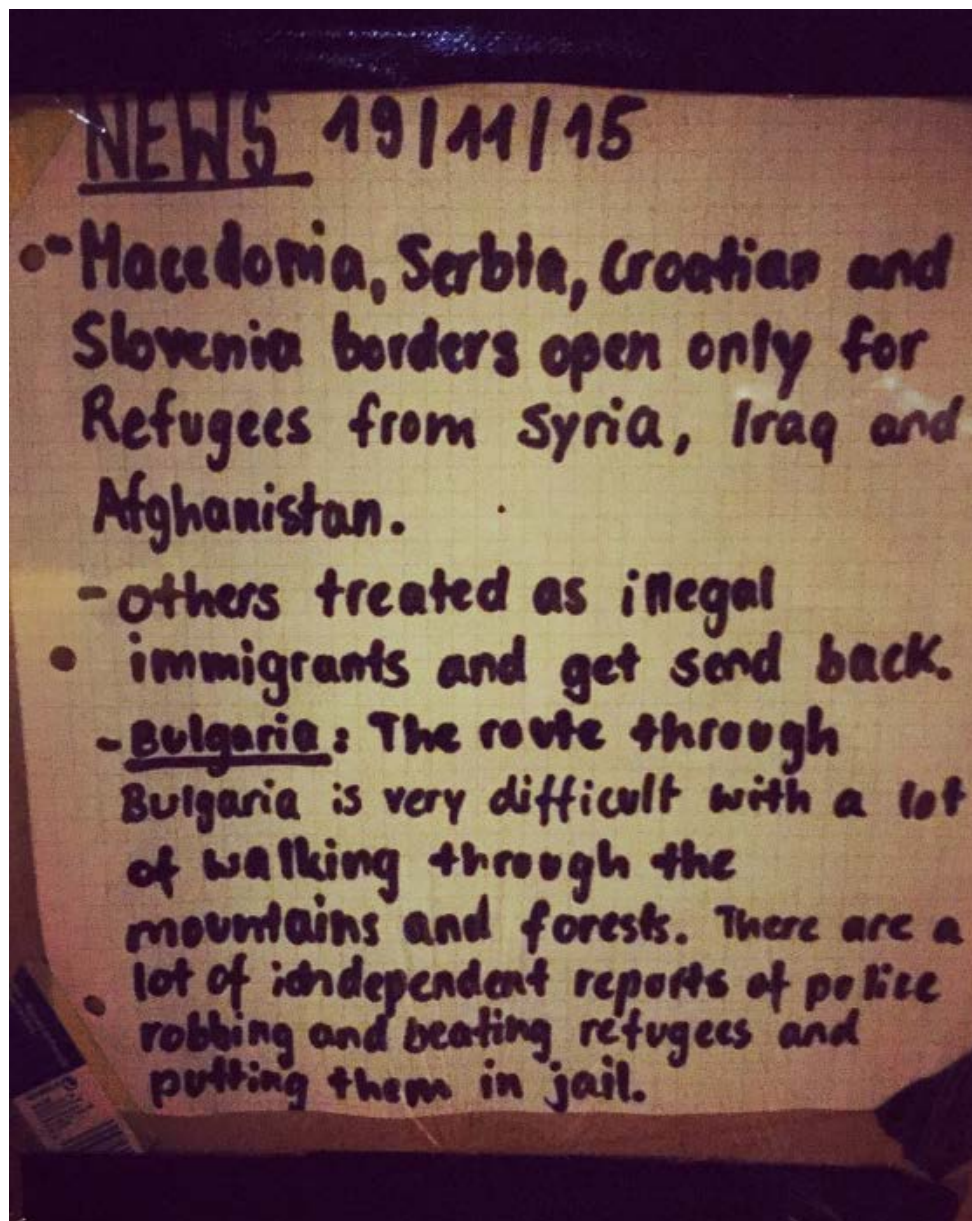 NEWS 19/11/15
- Macedonia, Serbia, Croatian and
Slovenia borders open only for
Refugees from Syria, Iraq and
Afghanistan.
- others treated as illegal
immigrants and get send back.
- Bulgaria: The route through
Bulgaria is very difficult with a lot
of walking through the
mountains and forests. There are a
lot of independent reports of police
robbing and beating refugees and
putting them in jail.